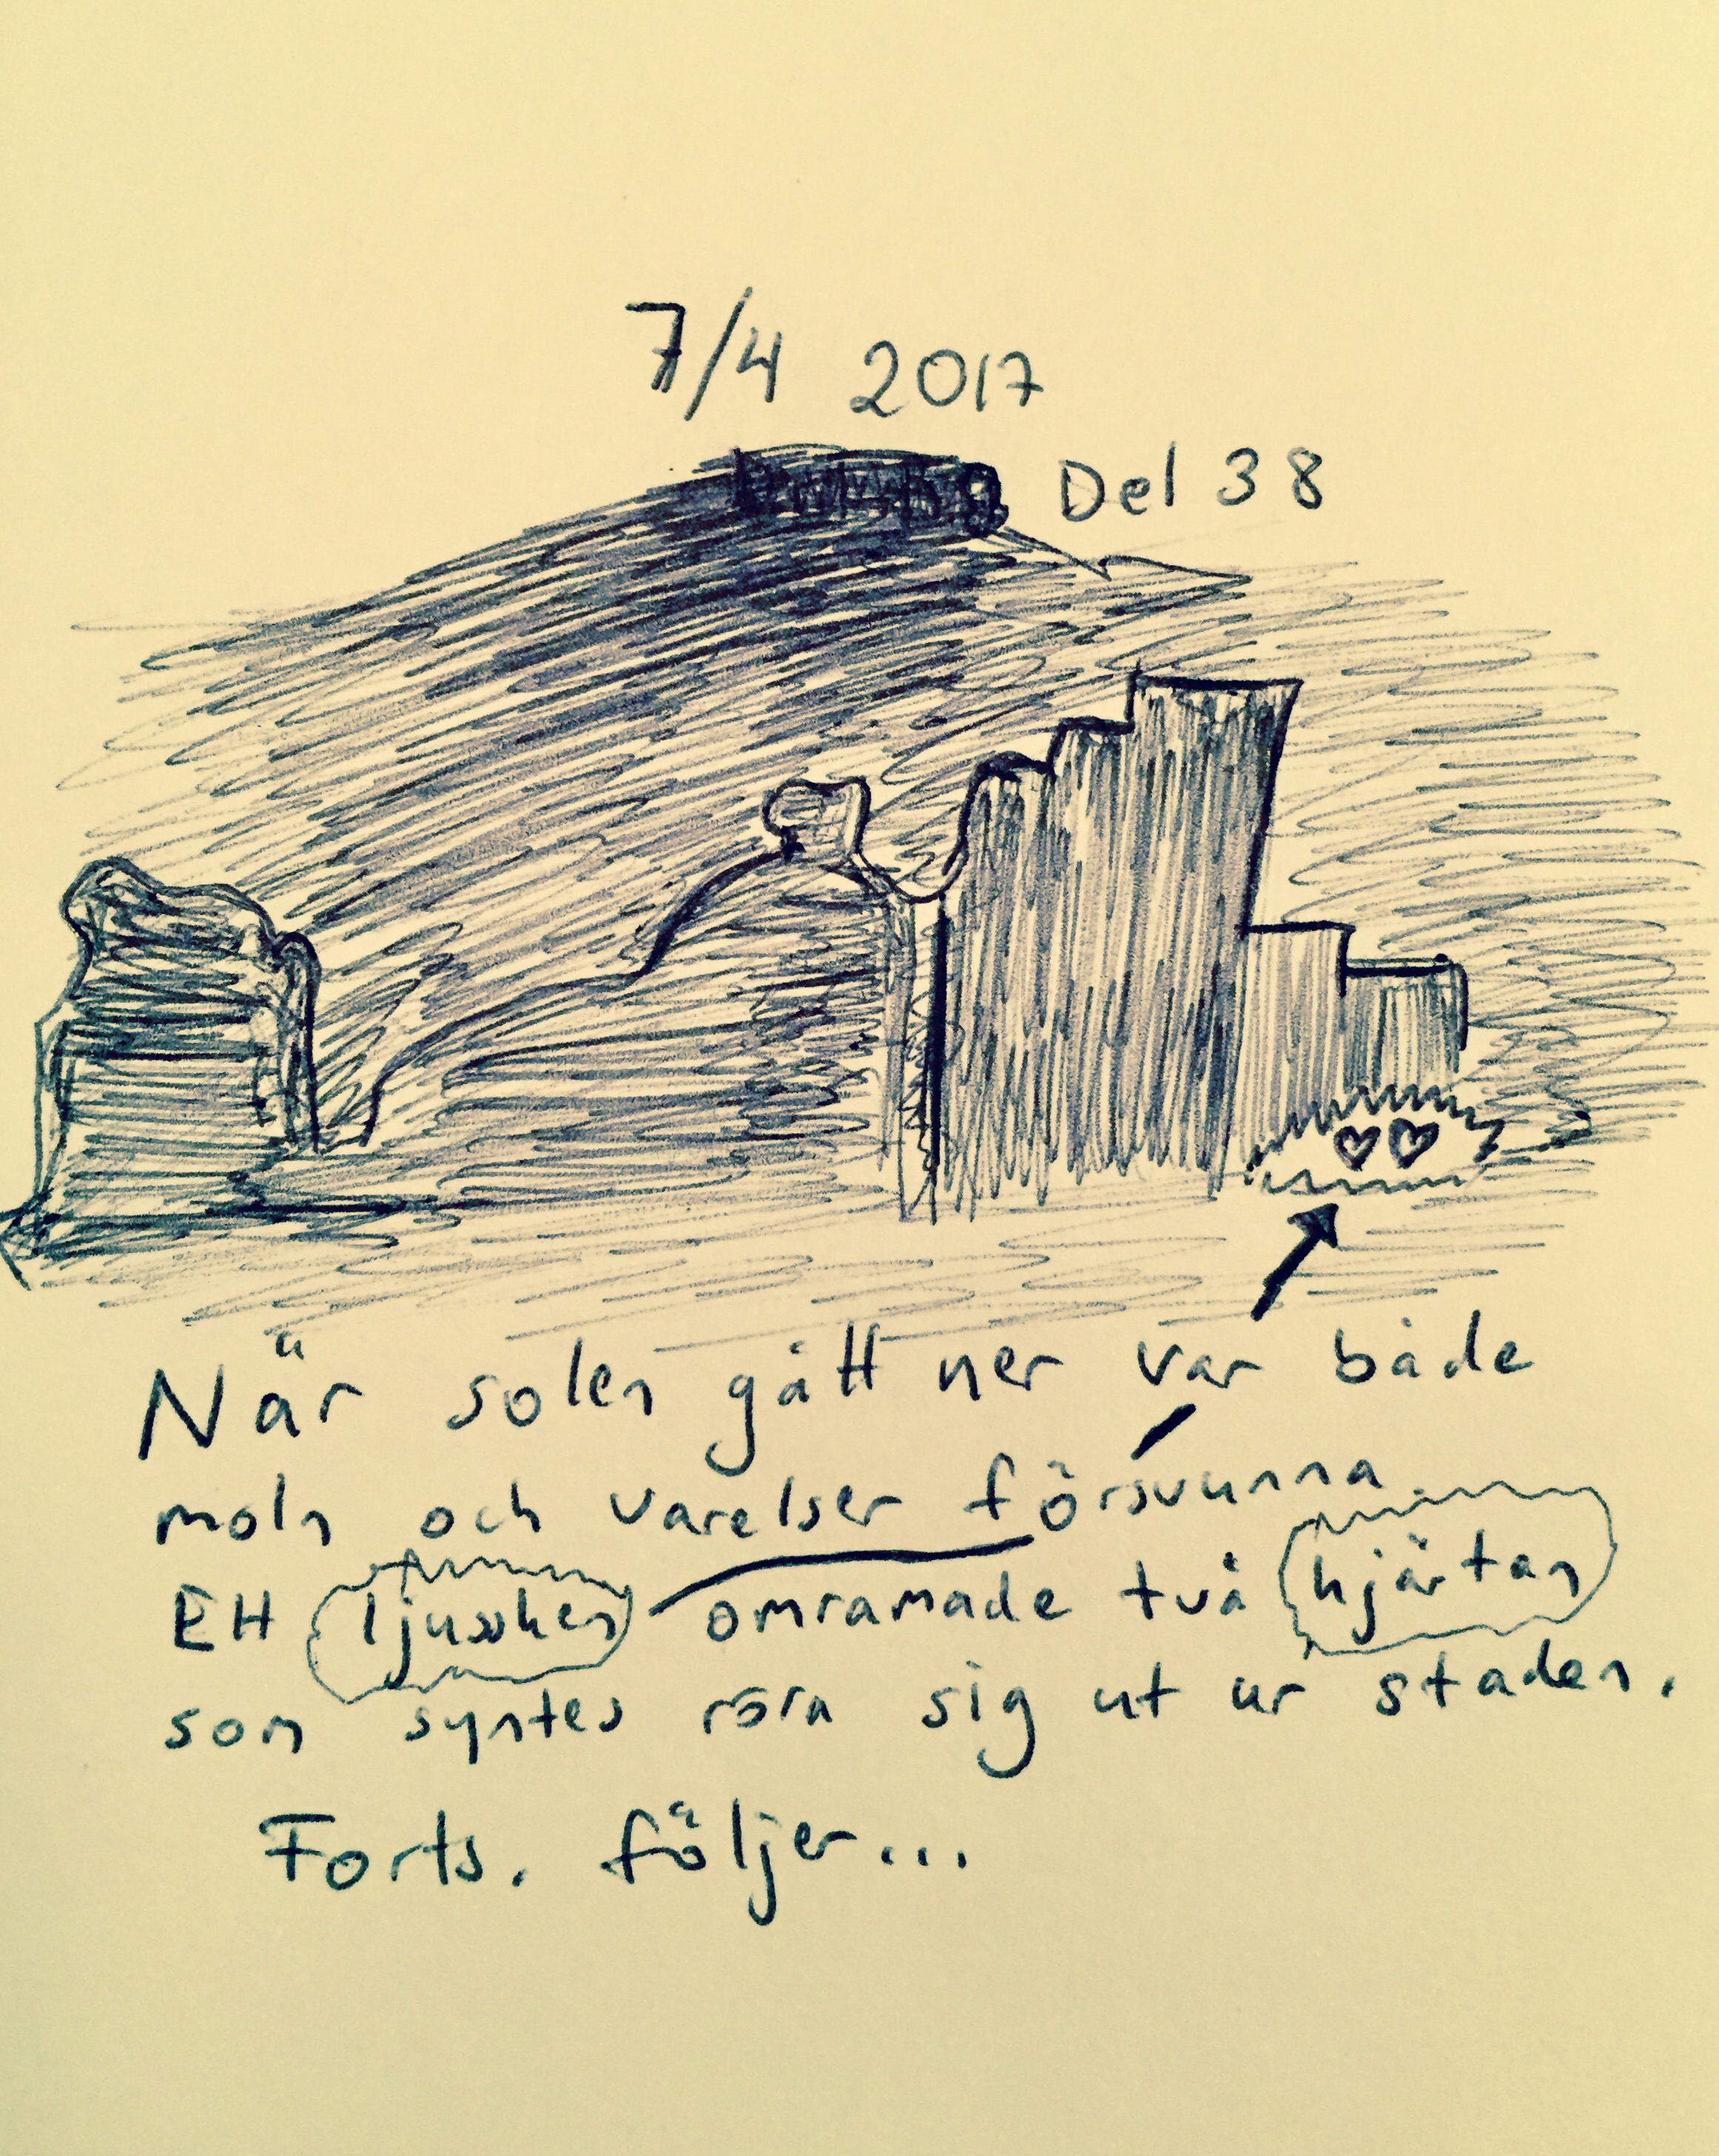 7/4 2017
Del 38
När solen gått ner var både
moln och varelser försvunna.
Ett ljussken omramade två hjärtan
som syntes röra sig ut ur staden.
Forts. följer...